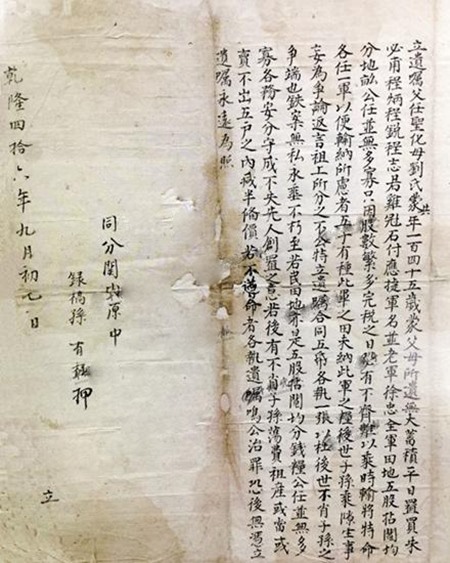 立遺囑父任聖化母劉氏蒙共年一百四十五歲蒙父母所遺無大蓄積平日置買朱
必甫程炳程銳程志君雞冠石付應捷軍名並老軍徐忠全軍田地五股拈鬮均
分地畝公任並無多寡只因股數繁多完稅之日有不齊難以乘時輸將特命
各任一軍以便輸納所慮者五子有種此軍之田夫納此軍之糧後世子孫乘隙生事
妄為爭論返言祖工所分之不公特立遺囑合同五紙各執一張以杜後世不肖子孫之
爭端也鉄案無私永垂不朽至若民田地亦是五股拈鬮均分錢糧公任並無多
寡各務安分守成不失先人創置之意若後有不肖子孫蕩費祖產或當或
賣不出五戶之內减半偹價若不遵命者各執遺囑鳴公治罪恐後無憑立
遺囑永遠為照
同分鬮戬原中
錄稿孫 有 押
乾隆四拾六年九月初七日
立